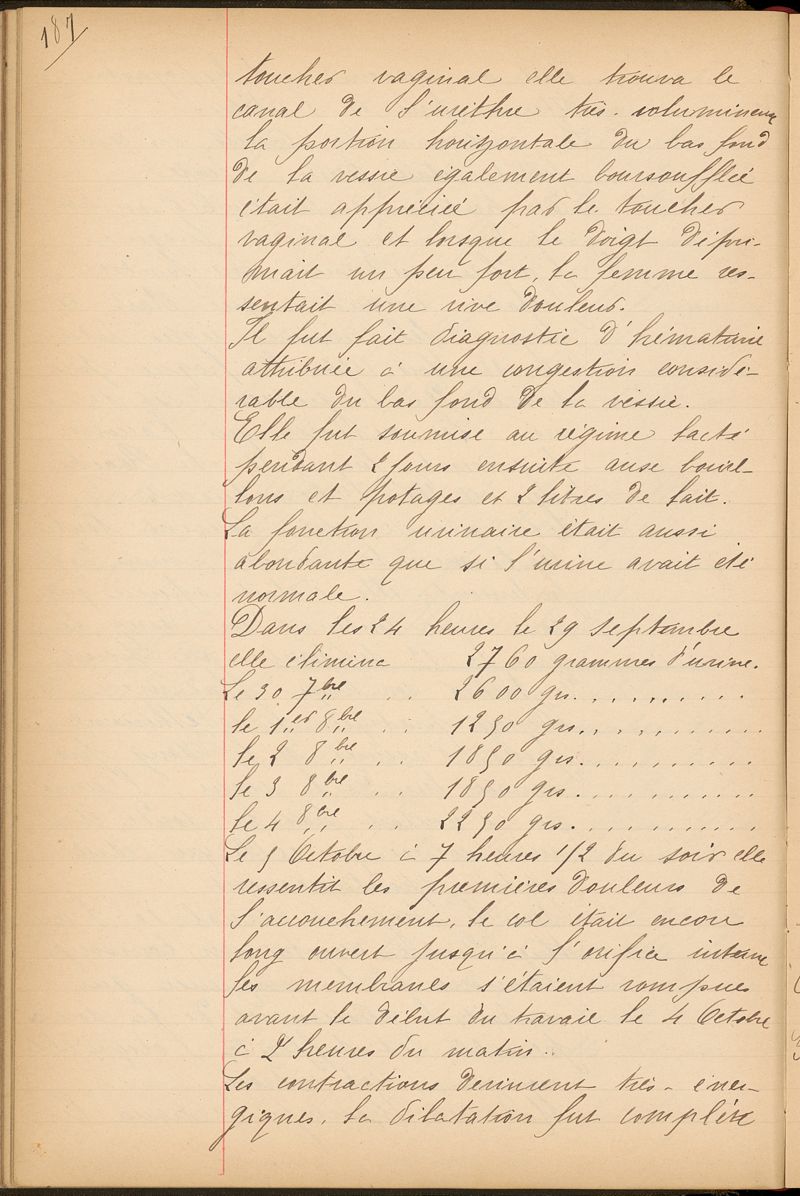 187
toucher vaginal elle trouva le
canal de l'urèthre très-volumineux
la portion horizontale du bas fond
de la vessie également boursoufflée
était appréciée par le toucher
vaginal et lorsque le doigt dépri-
mait un peu fort, la femme res-
sentait une vive douleur.
Il fut fait diagnostic d'hématurie
attribuée à une congestion considé-
rable du bas fond de la vessie.
Elle fut soumise au régime lacté
pendant 2 jours ensuite aux bouil-
lons et potages et 2 litres de lait.
La fonction urinaire était aussi
abondante que si l'urine avait été
normale.
Dans les 24 heures le 29 septembre
elle élimina 2760 grammes d'urine.
Le 30 7bre .. 2600 grs. . . . . . . . . .
le 1er 8bre .. 1250 grs. . . . . . . . . . .
le 2 8bre .. 1850 grs. . . . . . . . . .
le 3 8bre .. 1850 grs. . . . . . . . . .
le 4 8bre .. 2250 grs. . . . . . . . . . .
Le 5 Octobre à 7 heures 1/2 du soir elle
ressentit les premières douleurs de
l'accouchement, le col était encore
long ouvert jusqu'à l'orifice interne
les membranes s'étaient rompues
avant le début du travail le 4 Octobre
à 2 heures du matin..
Les contractions devinrent très-éner-
giques, la dilatation fut complète